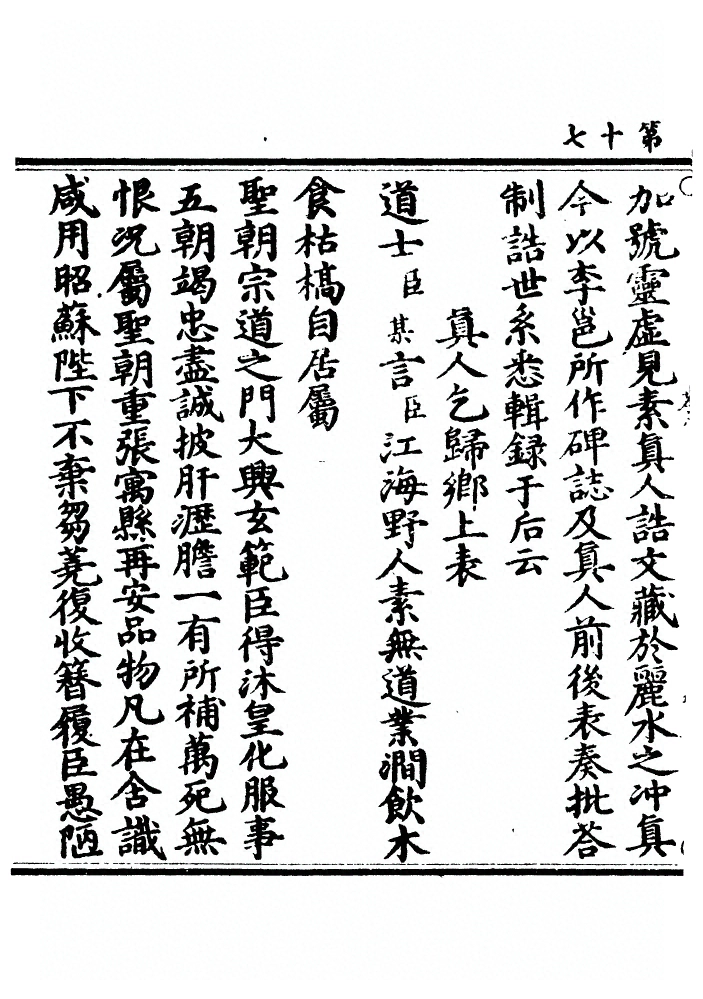 第十七
加號靈虛見素真人誥文藏於麗水之冲真
今以李邕所作碑誌及真人前後表奏批荅
制誥世系悉輯録于后云
真人乞歸鄉上表
道士臣某言臣江海野人素無道業澗飲木
食枯槁自居屬
聖朝宗道之門大興玄範臣得沐皇化服事
五朝竭忠盡誠披肝瀝膽一有所補萬死無
恨况屬聖朝重張寓縣再安品物凡在含識
咸用昭蘇陛下不棄芻蕘復收簪履臣愚陋